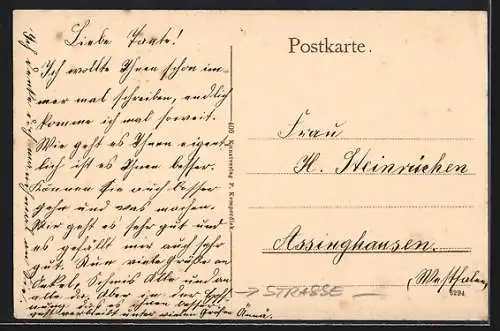 Liebe Tante!
Ich wollte Ihnen schon im-
mer mal schreiben, endlich
komme ich mal soweit.
Wie geht es Ihnen eigent-
lich ist es Ihnen besser.
Können Sie auch besser
gehn und was machen.
Mir geht es sehr gut und
es gefällt mir auch sehr
gut. Nun viele Grüße an
Onkel, Alle und an
alle die
vielen Grüßen Änna.
400 Kunstverlag P.
Postkarte.
Frau
H. Steinrücken
Assinghausen.
Westfalen
STRASSE
9294